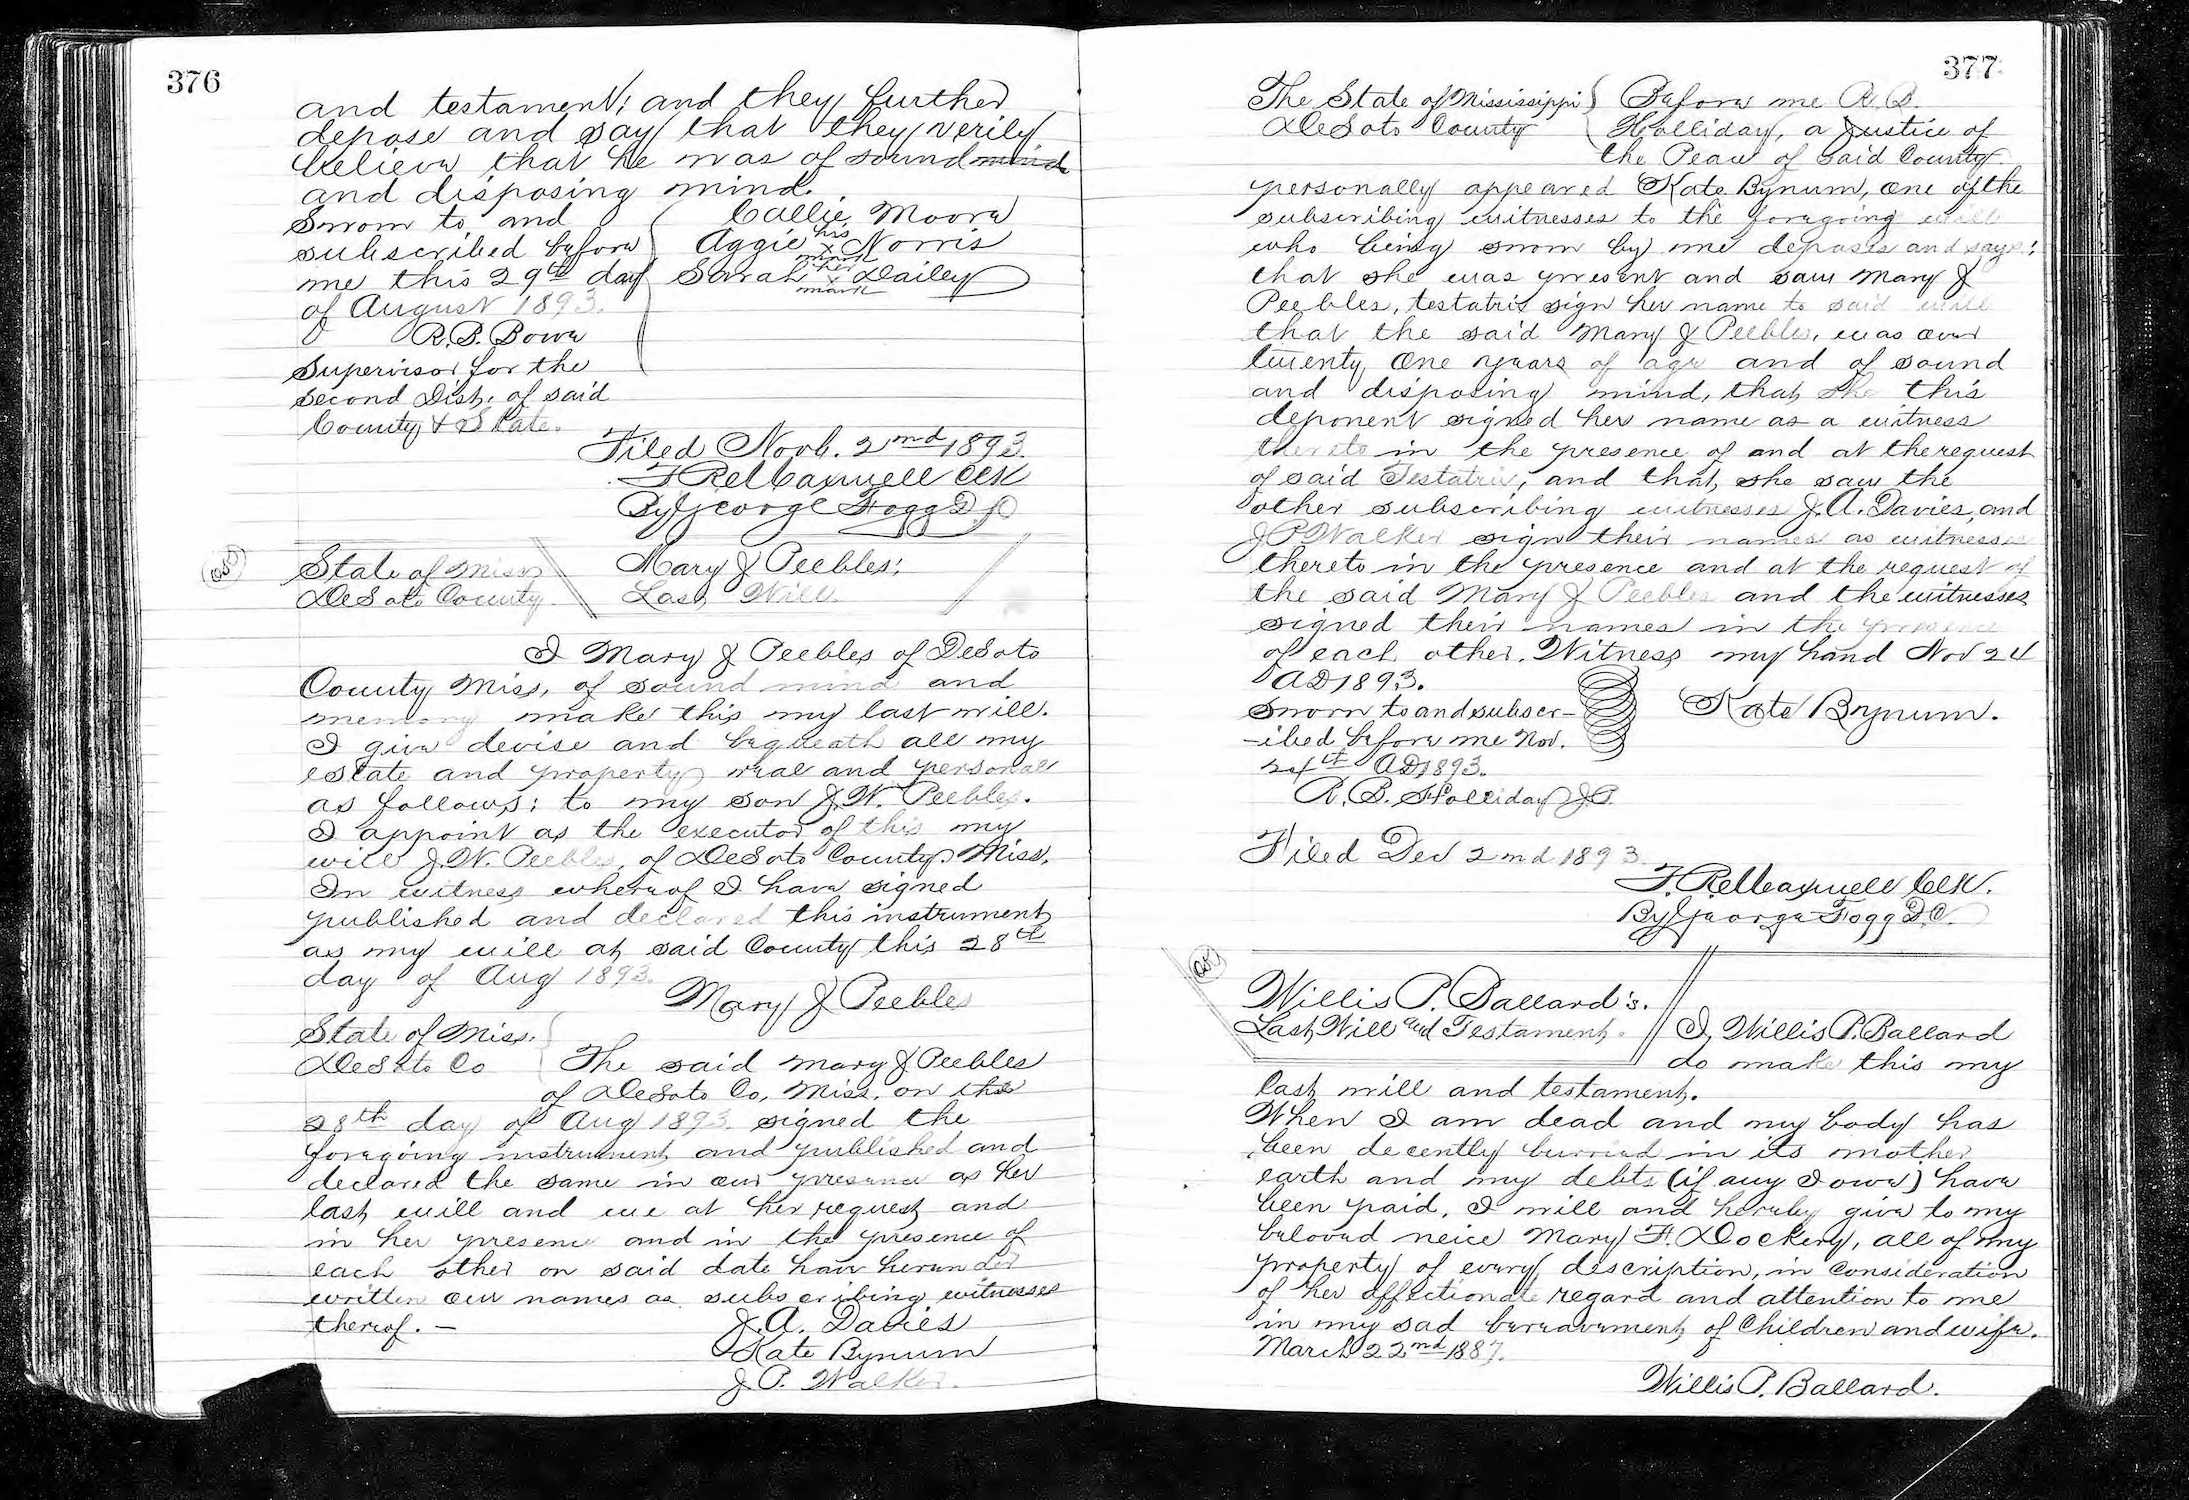 376
and testament; and they further
depose and say that they verily
believe that he was of sound mind
and disposing mind.
Sworn to and
subscribed before
me this 29th day
of August 1893.
R.B. Bowe
Supervisor for the
second Dist. of said
County & State.
Callie Moore
Aggie his x mark Norris
Sarah her x mark Dailey
Filed Novb. 2nd 1893.
Clk
By George Fogg D.C
State of Miss
DeSoto County
Mary J Peebles;
Last Will.
I Mary J Peebles of DeSoto
County Miss, of sound mind and
memory make this my last will.
I give devise and bequeath all my
estate and property real and personal
as follows; to my son J.W. Peebles.
I appoint as the executor of this my
will J.W. Peebles, of DeSoto County Miss.
In witness whereof I have signed
published and declared this instrument
as my will at said County this 28th
day of Aug 1893.
Mary J Peebles
State of Miss.
DeSoto Co
The said Mary J Peebles
of DeSoto Co, Miss. on the
28th day of Aug 1893. signed the
foregoing instrument and published and
declared the same in our presence as her
last will and we at her request and
in her presence and in the presence of
each other on said date have hereunder
written our names as subscribing witnesses
thereof. —
J.A. Davies
Kate Bynum
J.P. Walker.
377
The State of Mississippi
DeSoto County
Before me R.B.
Holliday, a Justice of
the Peace of said County
personally appeared Kate Bynum, one of the
subscribing witnesses to the foregoing will
who being sworn by me deposes and says;
that she was present and saw Mary J
Peebles, testatrix sign her name to said will
that the said Mary J Peebles, was over
twenty one years of age and of sound
and disposing mind, that she this
deponent signed her name as a witness
thereto in the presence of and at the request
of said Testatrix, and that she saw the
other subscribing witnesses J.A. Davies, and
J P Walker sign their names as witnesses
thereto in the presence and at the request of
the said Mary J Peebles and the witnesses
signed their names in the presence
of each other. Witness my hand Nov 24
AD 1893.
Sworn to and subscr-
-ibed before me Nov.
24th AD 1893.
R.B. Holliday J.P.
Kate Bynum.
Filed Dec 2nd 1893
Clk.
By George Fogg D.C.
Willis P. Ballard's.
Last Will and Testament.
I, Willis P. Ballard
do make this my
last will and testament.
When I am dead and my body has
been decently burried in its mother
earth and my debts (if any I owe) have
been paid, I will and hereby give to my
beloved neice Mary F. Dockery, all of my
property of every description, in consideration
of her affectionate regard and attention to me
in my sad bereavement of Children and wife.
March 22nd 1887.
Willis P. Ballard.